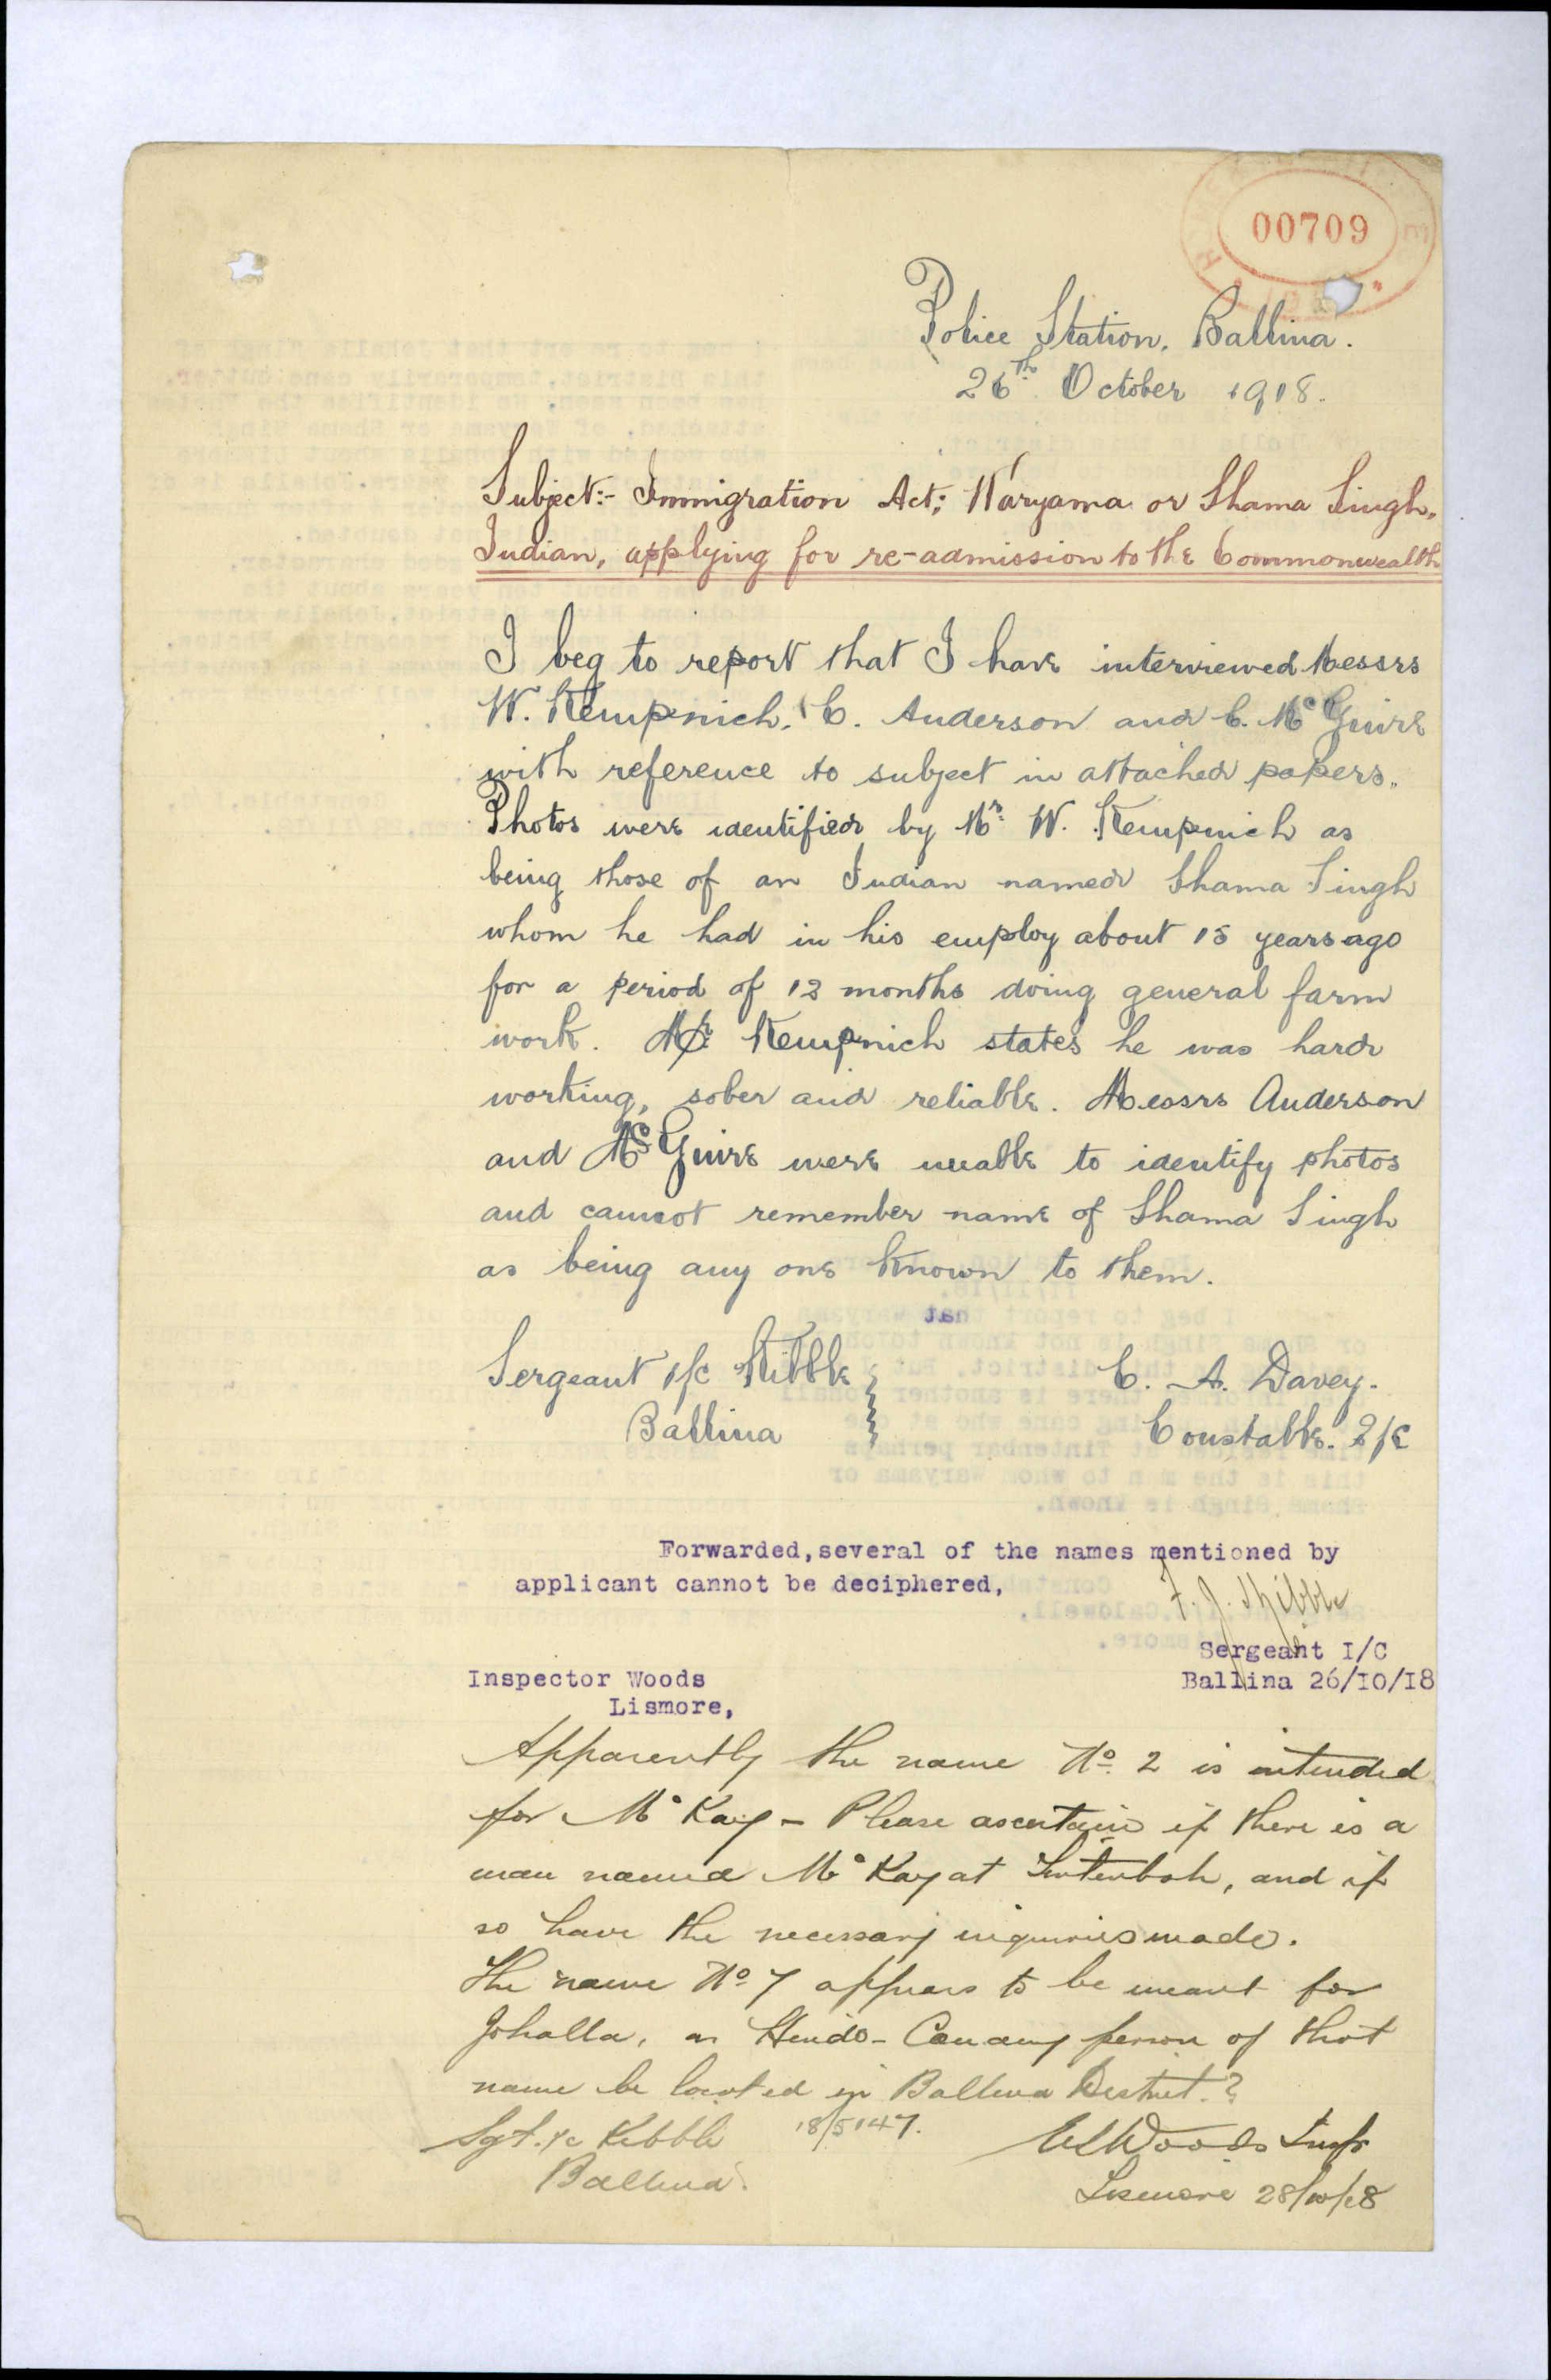 00709
Police Station, Ballina.
26th October 1918.
Subject:- Immigration Act; Waryama or Shama Singh,
Indian, applying for re-admission to the Commonwealth
I beg to report that I have interviewed Messrs
W. Kempnich, C. Anderson and C. McGuire
with reference to subject in attached papers.
Photos were identified by Mr. W. Kempnich as
being those of an Indian named Shama Singh
whom he had in his employ about 15 years ago
for a period of 12 months doing general farm
work. Mr. Kempnich states he was hard
working, sober and reliable. Messrs Anderson
and McGuire were unable to identify photos
and cannot remember name of Shama Singh
as being any one known to them.
Sergeant I/C Kibble
Ballina
C. A. Davey.
Constable. 2/C
Forwarded, several of the names mentioned by
applicant cannot be deciphered,
Sergeant I/C
Ballina 26/10/18
Inspector Woods
Lismore,
Apparently the name No. 2 is intended
for McKay - Please ascertain if there is a
man named McKay at , and if
so have the necessary inquiries made.
The name No. 7 appears to be meant for
Johalla, a Hindo - Can any person of that
name be located in Ballina District?
Sgt. I/C Kibble
Ballina.
18/5147.
Woods Insp
Lismore 28/10/18